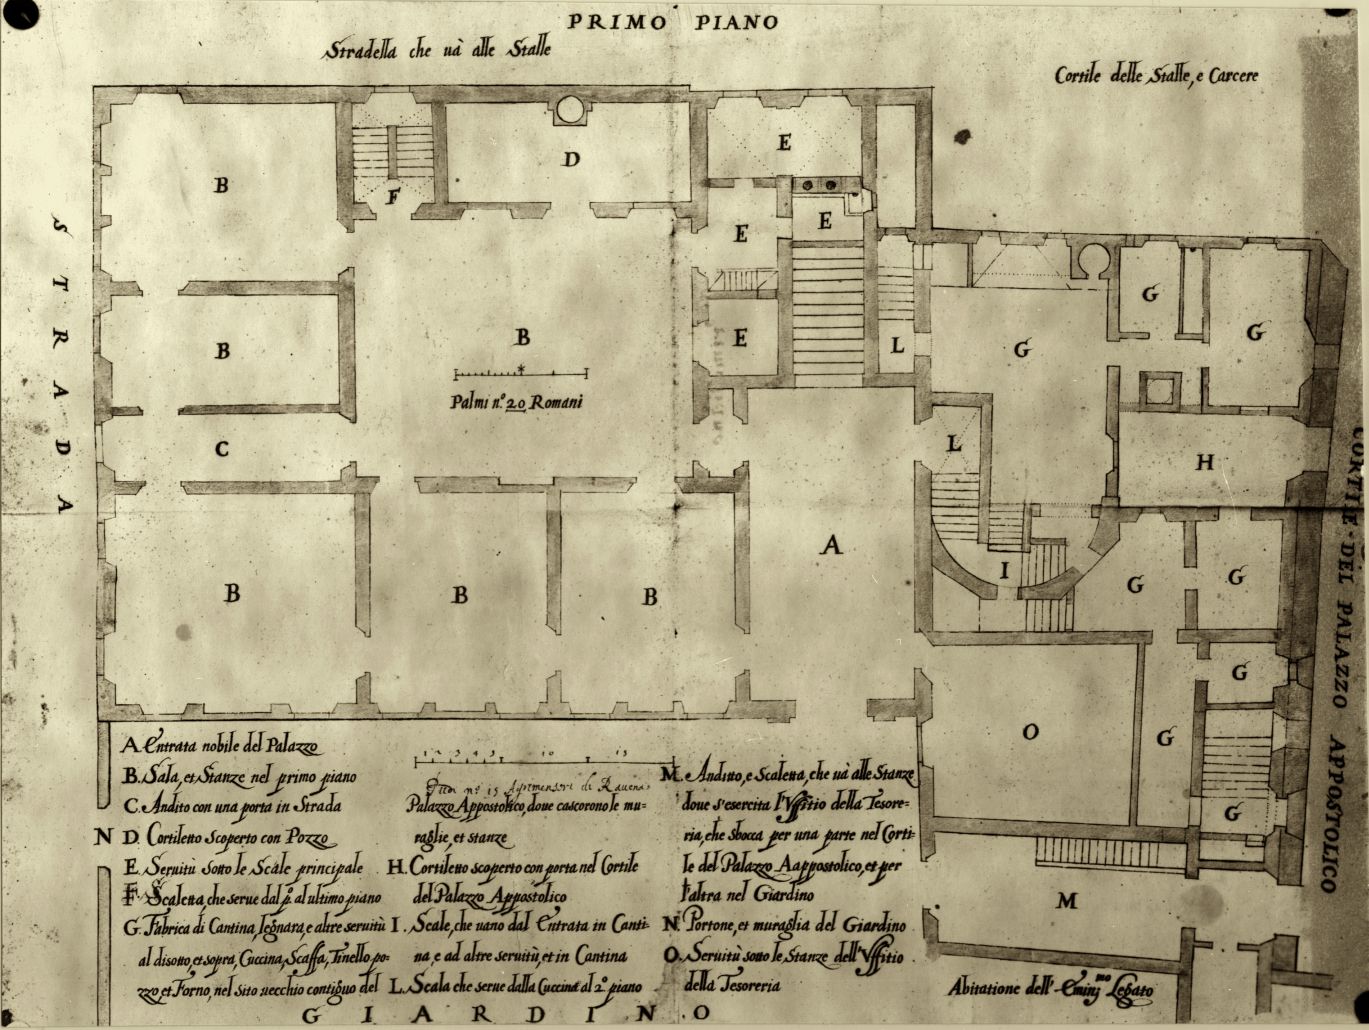 PRIMO PIANO
Stradella che uà alle Stalle
Cortile delle Stalle, e Carcere
STRADA
B
F
D
E
E
E
E
B
B
C
Palmi n.º 20 Romani
L
G
G
G
L
H
A
B
B
B
I
G
G
G
O
G
G
M
CORTILE DEL PALAZZO APPOSTOLICO
A Entrata nobile del Palazzo
B. Sala, et Stanze nel primo piano
C. Andito con una porta in Strada
N
D Cortiletto Scoperto con Pozzo
E Seruitù sotto le Scale principale
F Scaletta, che serue dal p.º al ultimo piano
G. Fabrica di Cantina, legnara, e altre seruitù
al disotto, et sopra, Cuccina, Scaffa, Tinello, po=
zzo, et Forno, nel sito uecchio contiguo del
1 2 3 4 5 10 15
n.º 15
Palazzo Appostolico, doue cascorono le mu=
raglie, et stanze
H. Cortiletto scoperto con porta nel Cortile
del Palazzo Appostolico
I. Scale, che uano dal Entrata in Canti=
na, e ad altre seruitù, et in Cantina
L. Scala che serue dalla Cuccina al 2.º piano
M. Andito, e Scaletta, che uà alle Stanze
doue s'esercita l'Vffitio della Tesore=
ria, che sbocca per una parte nel Corti=
le del Palazzo Aappostolico, et per
l'altra nel Giardino
N. Portone, et muraglia del Giardino
O. Seruitù sotto le Stanze dell'Vffitio
della Tesoreria
Abitatione dell' Emin.mo Legato
GIARDINO